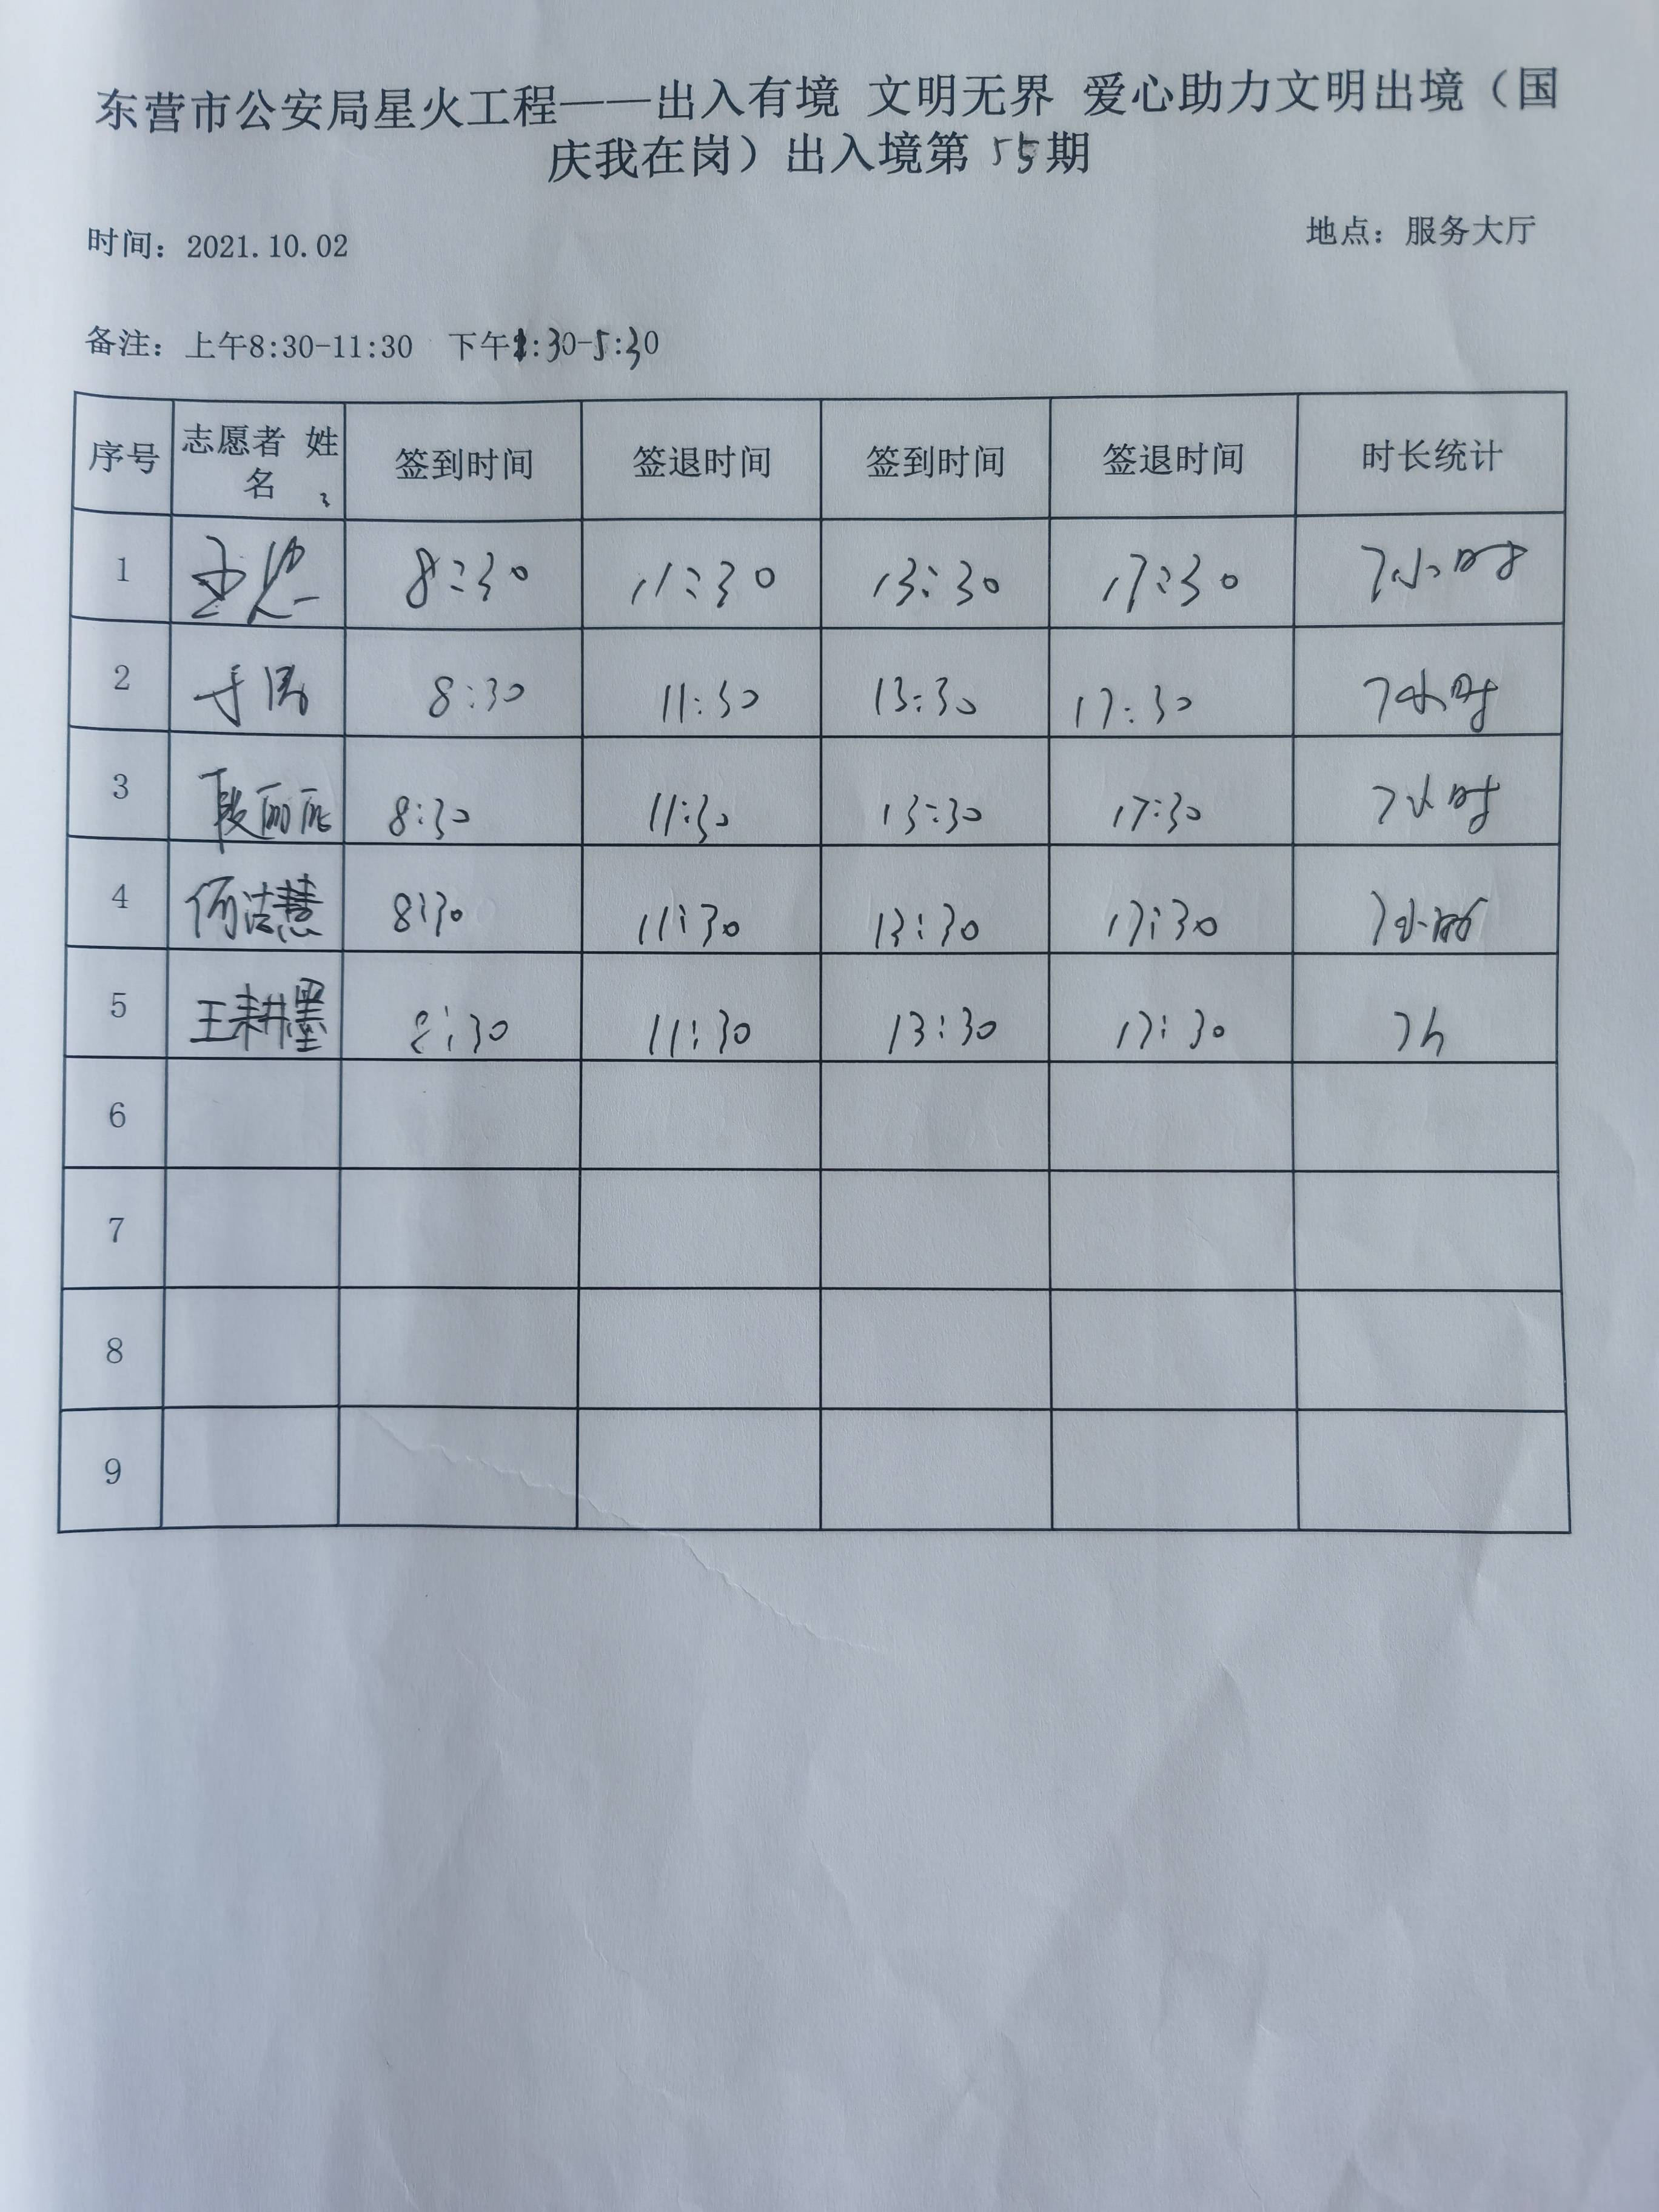 东营市公安局星火工程——出入有境 文明无界 爱心助力文明出境（国
庆我在岗）出入境第55期
时间：2021.10.02
地点：服务大厅
备注：上午8:30-11:30 下午1:30-5:30
序号 志愿者 姓名 签到时间 签退时间 签到时间 签退时间 时长统计
1 8:30 11:30 13:30 17:30 7小时
2 8:30 11:30 13:30 17:30 7小时
3 段丽丽 8:30 11:30 13:30 17:30 7小时
4 何洁慧 8:30 11:30 13:30 17:30 7小时
5 王耕墨 8:30 11:30 13:30 17:30 7h
6
7
8
9